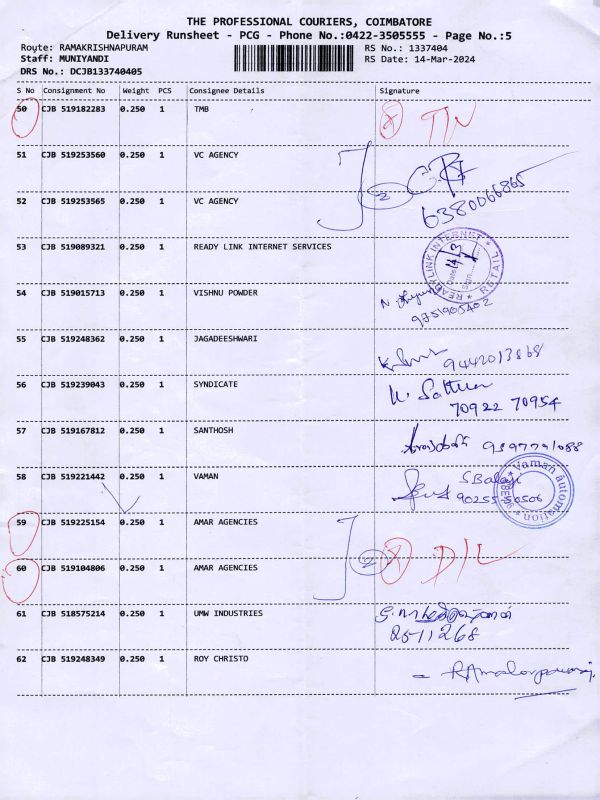 THE PROFESSIONAL COURIERS, COIMBATORE
Delivery Runsheet - PCG - Phone No.:0422-3505555 - Page No.:5
Route: RAMAKRISHNAPURAM RS No.: 1337404
Staff: MUNIYANDI RS Date: 14-Mar-2024
DRS No.: DCJB133740405
S No Consignment No Weight PCS Consignee Details Signature
50 CJB 519182283 0.250 1 TMB
51 CJB 519253560 0.250 1 VC AGENCY
2
52 CJB 519253565 0.250 1 VC AGENCY 6380066865
53 CJB 519089321 0.250 1 READY LINK INTERNET SERVICES
READY LINK INTERNET RETAIL
54 CJB 519015713 0.250 1 VISHNU POWDER
9751905402
55 CJB 519248362 0.250 1 JAGADEESHWARI
9442013868
56 CJB 519239043 0.250 1 SYNDICATE
70922 70954
57 CJB 519167812 0.250 1 SANTHOSH
9397791088
58 CJB 519221442 0.250 1 VAMAN S Balaji
90255 50506
Vaman automation
59 CJB 519225154 0.250 1 AMAR AGENCIES
2 D/L
60 CJB 519104806 0.250 1 AMAR AGENCIES
61 CJB 518575214 0.250 1 UMW INDUSTRIES
2511268
62 CJB 519248349 0.250 1 ROY CHRISTO